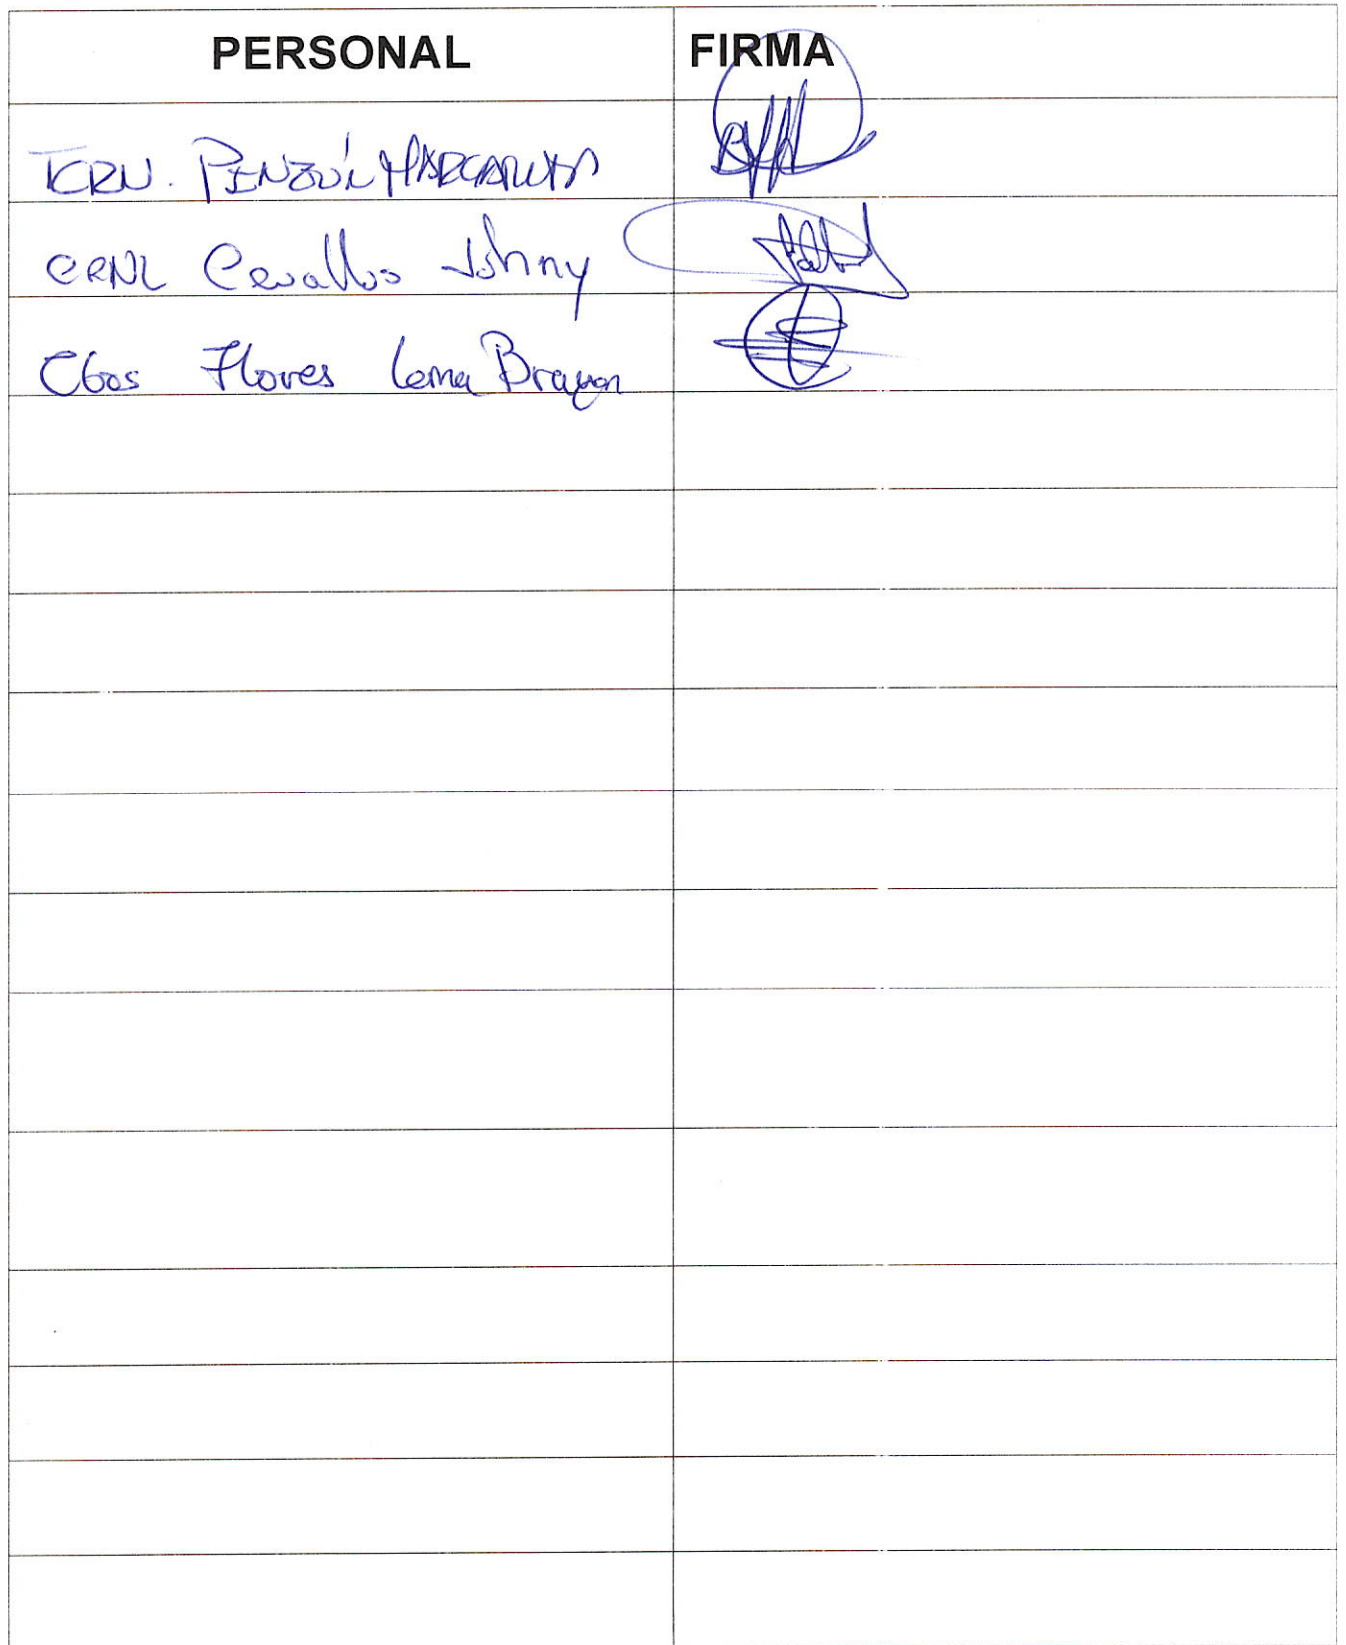 PERSONAL FIRMA
TCRN. PINZÓN MARGARITA
CRNL Cevallos Johnny
Cbos Flores Lema Brayan